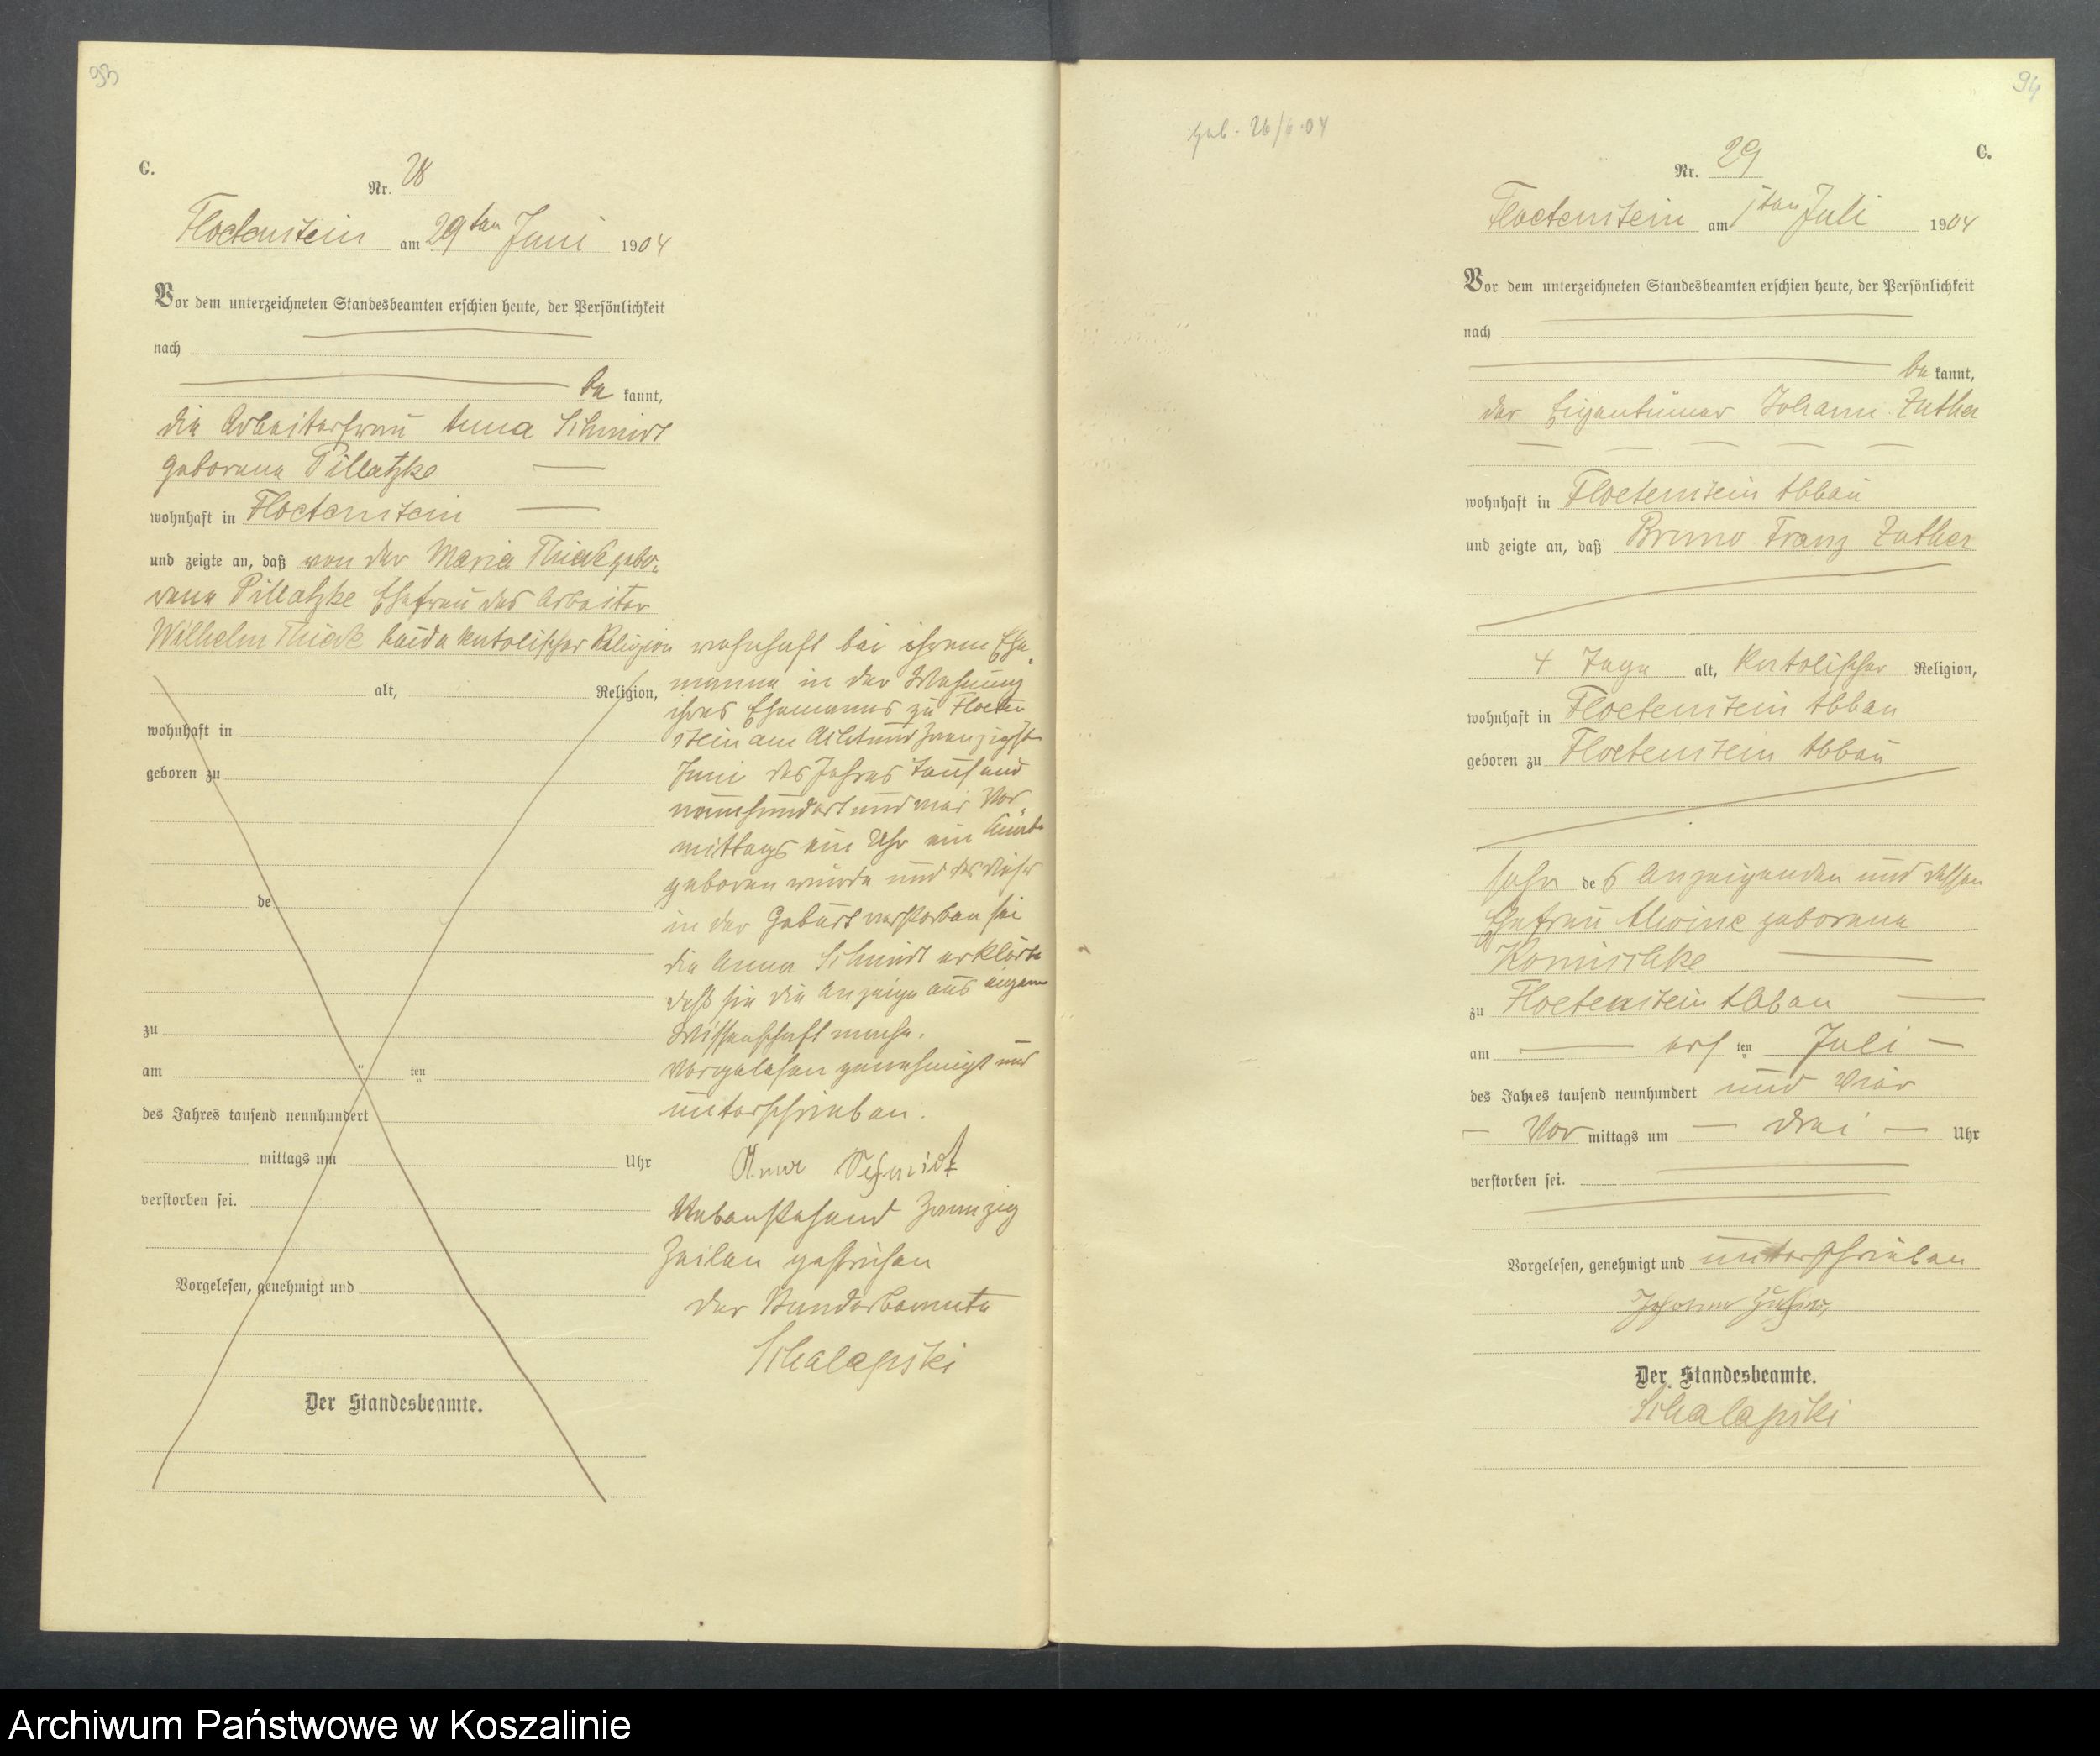 93
C.
Nr. 28
Floetenstein am 29ten Juni 1904
Vor dem unterzeichneten Standesbeamten erschien heute, der Persönlichkeit
nach
be kannt,
die Arbeiterfrau Anna Schmidt
geborene Pillatzke
wohnhaft in Floetenstein
und zeigte an, daß von der Maria Thiede gebo-
rene Pillatzke Ehefrau des Arbeiter
Wilhelm Thiede beide katolischer Religion
alt, Religion,
wohnhaft in
geboren zu
de
zu
am ten
des Jahres tausend neunhundert
mittags um Uhr
verstorben sei.
Vorgelesen, genehmigt und
Der Standesbeamte.
wohnhaft bei ihrem Ehe-
manne in der Wohnung
ihres Ehemannes zu Floeten
stein am Achtundzwanzigsten
Juni des Jahres tausend
neunhundert und vier Vor-
mittags ein Uhr ein
geboren wurde und das dieses
in der Geburt verstorben sei
die Anna Schmidt erklärte
daß sie die Anzeige aus eigener
Wissenschaft mache.
Vorgelesen genehmigt und
unterschrieben.
Anna Schmidt
Nebenstehend Zwanzig
Zeilen gestrichen
Der Standesbeamte
Schalapski
94
geb. 26/6.04
C.
Nr. 29
Floetenstein am 1ten Juli 1904
Vor dem unterzeichneten Standesbeamten erschien heute, der Persönlichkeit
nach
be kannt,
der Eigentümer Johann Zuther
wohnhaft in Floetenstein Abbau
und zeigte an, daß Bruno Franz Zuther
4 Tage alt, katolischer Religion,
wohnhaft in Floetenstein Abbau
geboren zu Floetenstein Abbau
Sohn des Anzeigenden und dessen
Ehefrau Alwine geborene
Komischke
zu Floetenstein Abbau
am ers ten Juli
des Jahres tausend neunhundert und vier
Vor mittags um drei Uhr
verstorben sei.
Vorgelesen, genehmigt und unterschrieben
Johann Zuther
Der Standesbeamte.
Schalapski
Archiwum Państwowe w Koszalinie